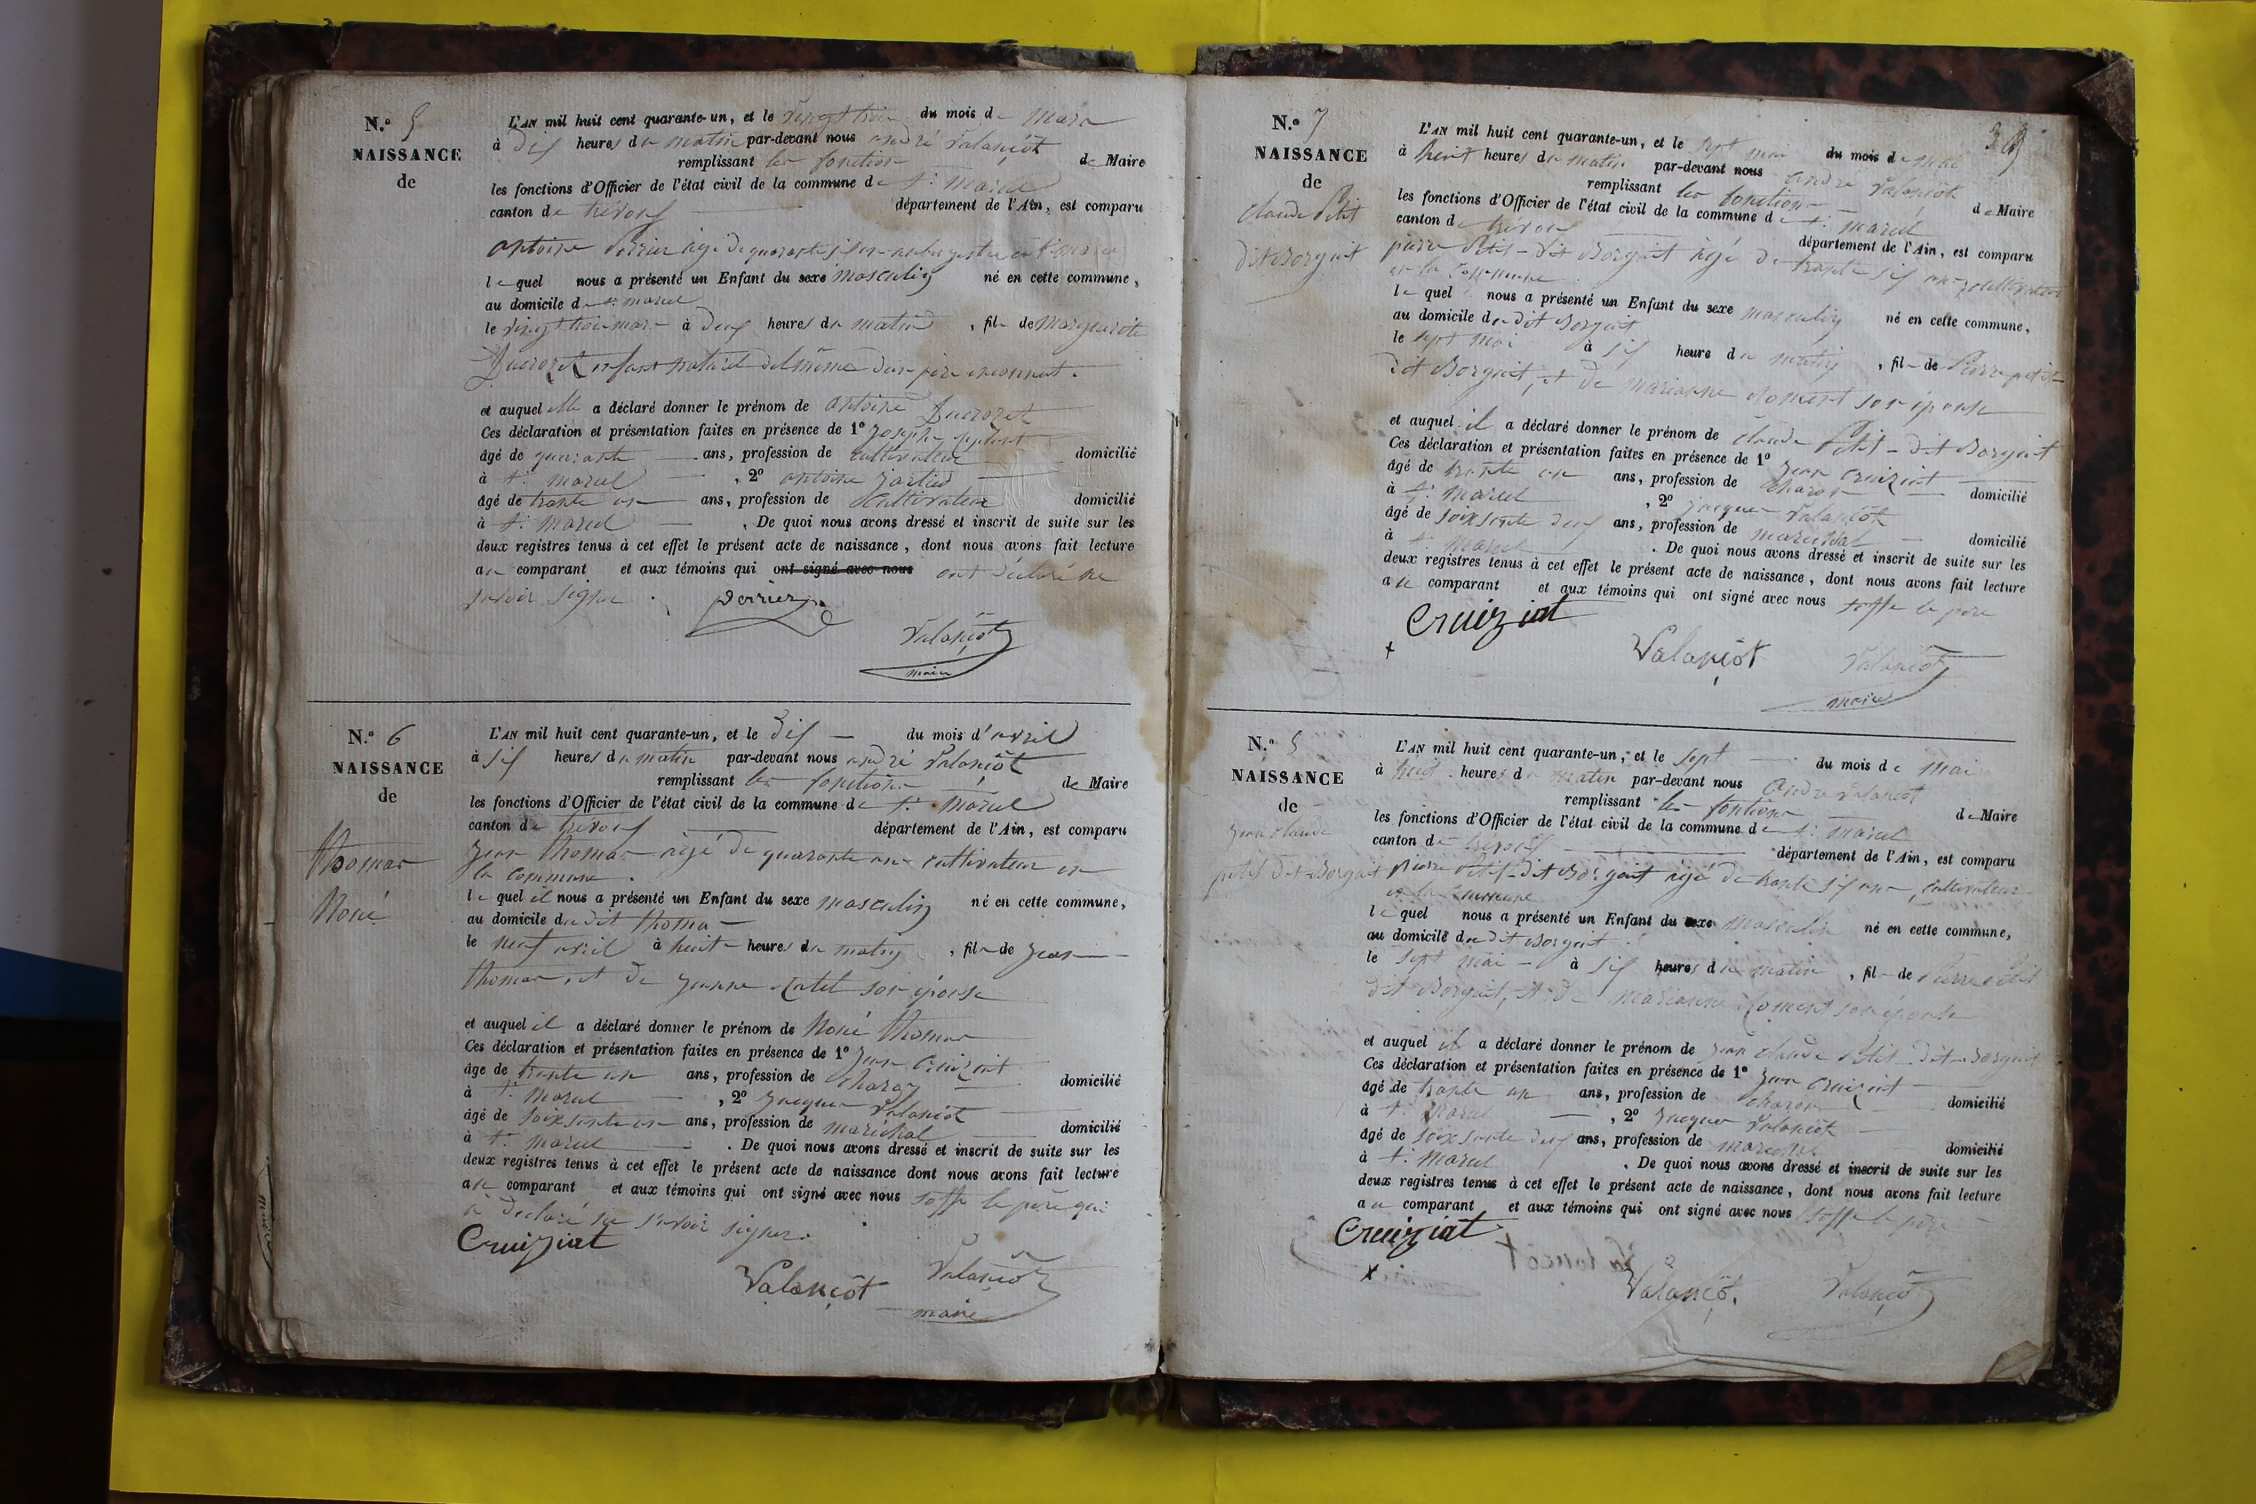 N.° 5
NAISSANCE
de
L'AN mil huit cent quarante-un, et le vingt trois du mois de mars
à dix heures du matin par-devant nous andré Valançót
remplissant les fonction de Maire
les fonctions d'Officier de l'état civil de la commune de St marcel
canton de trévoux département de l'Ain, est comparu
antoine Perrier âgé de quarante
le quel nous a présenté un Enfant du sexe masculin né en cette commune,
au domicile de St marcel
le vingt trois mars à deux heures du matin, fils de Marguerite
Ducroret enfant naturel
et auquel elle a déclaré donner le prénom de antoine Ducroret
Ces déclaration et présentation faites en présence de 1° Joseph
âgé de quarante ans, profession de cultivateur domicilié
à St marcel, 2° antoine
âgé de trante un ans, profession de cultivateur domicilié
à St marcel. De quoi nous avons dressé et inscrit de suite sur les
deux registres tenus à cet effet le présent acte de naissance, dont nous avons fait lecture
au comparant et aux témoins qui ont signé avec nous ont déclaré ne
savoir signer. perrier
Valançót
maire
N.° 6
NAISSANCE
de
thomas
Noné
L'AN mil huit cent quarante-un, et le dix du mois d'avril
à six heures du matin par-devant nous andré Valançót
remplissant les fonctions de Maire
les fonctions d'Officier de l'état civil de la commune de St marcel
canton de trévoux département de l'Ain, est comparu
Jean thomas âgé de quarante ans cultivateur en
la commune.
le quel il nous a présenté un Enfant du sexe masculin né en cette commune,
au domicile du dit thomas
le neuf avril à huit heures du matin, fils de Jean
thomas, et de Jeanne Catel son épouse
et auquel il a déclaré donner le prénom de Noné thomas
Ces déclaration et présentation faites en présence de 1° Jean Cruiziat
âge de trante un ans, profession de charon domicilié
à St marcel, 2° Jacques Valançót
âgé de soixsante un ans, profession de maréchal domicilié
à St marcel. De quoi nous avons dressé et inscrit de suite sur les
deux registres tenus à cet effet le présent acte de naissance dont nous avons fait lecture
au comparant et aux témoins qui ont signé avec nous soffe le père qui
a déclaré ne savoir signer.
Cruiziat
Valançót
Valançót
maire
N.° 7
NAISSANCE
de
claude Petit
dit Borgait
L'AN mil huit cent quarante-un, et le sept mai du mois de mai
à huit heures du matin par-devant nous andré Valançót
remplissant les fonctions de Maire
les fonctions d'Officier de l'état civil de la commune de St marcel
canton de trévoux département de l'Ain, est comparu
pierre Petit-dit Borgait âgé de trante six ans cultivateur
en la commune
le quel nous a présenté un Enfant du sexe masculin né en cette commune,
au domicile du dit Borgait
le sept mai à six heure du matin, fils de Pierre petit
dit Borgait, et de marianne son épouse
et auquel il a déclaré donner le prénom de claude Petit-dit Borgait
Ces déclaration et présentation faites en présence de 1° Jean Cruiziat
âgé de trante un ans, profession de charon domicilié
à St marcel, 2° Jacques Valançót
âgé de soixsante deux ans, profession de maréchal domicilié
à St marcel. De quoi nous avons dressé et inscrit de suite sur les
deux registres tenus à cet effet le présent acte de naissance, dont nous avons fait lecture
au comparant et aux témoins qui ont signé avec nous soffe le père
Cruiziat
Valançót
Valançót
maire
N.°
NAISSANCE
de
Jean claude
petit dit Borgait
L'AN mil huit cent quarante-un, et le sept du mois de mai
à huit heures du matin par-devant nous andré Valançót
remplissant les fonctions de Maire
les fonctions d'Officier de l'état civil de la commune de St marcel
canton de trévoux département de l'Ain, est comparu
Pierre Petit-dit Borgait âgé de trante six ans, cultivateur
en la commune
le quel nous a présenté un Enfant du sexe masculin né en cette commune,
au domicile du dit Borgait
le sept mai à six heures du matin, fils de Pierre Petit
dit Borgait, et de marianne son épouse
et auquel il a déclaré donner le prénom de Jean claude Petit dit Borgait
Ces déclaration et présentation faites en présence de 1° Jean Cruiziat
âgé de trante un ans, profession de charon domicilié
à St marcel, 2° Jacques Valançót
âgé de soixsante deux ans, profession de maréchal domicilié
à St marcel. De quoi nous avons dressé et inscrit de suite sur les
deux registres tenus à cet effet le présent acte de naissance, dont nous avons fait lecture
au comparant et aux témoins qui ont signé avec nous soffe le père
Cruiziat
Valançót.
Valançót